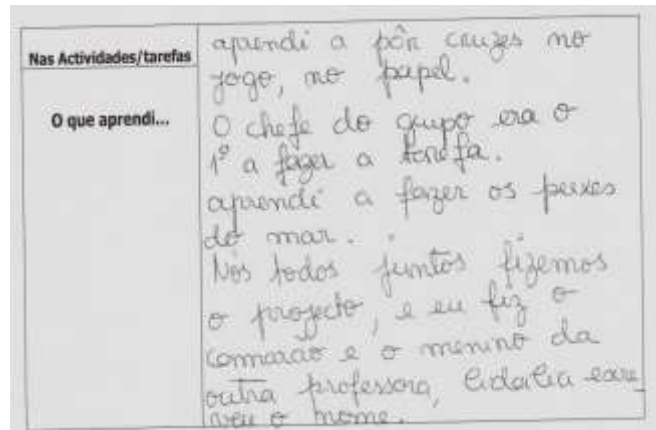 Nas Actividades/tarefas
O que aprendi...
aprendi a pôr cruzes no
jogo, no papel.
O chefe do grupo era o
1º a fazer a tarefa.
aprendi a fazer os peixes
do mar.
Nós todos juntos fizemos
o projecto, e eu fiz o
camarão e o menino da
outra professora, escre
veu o nome.